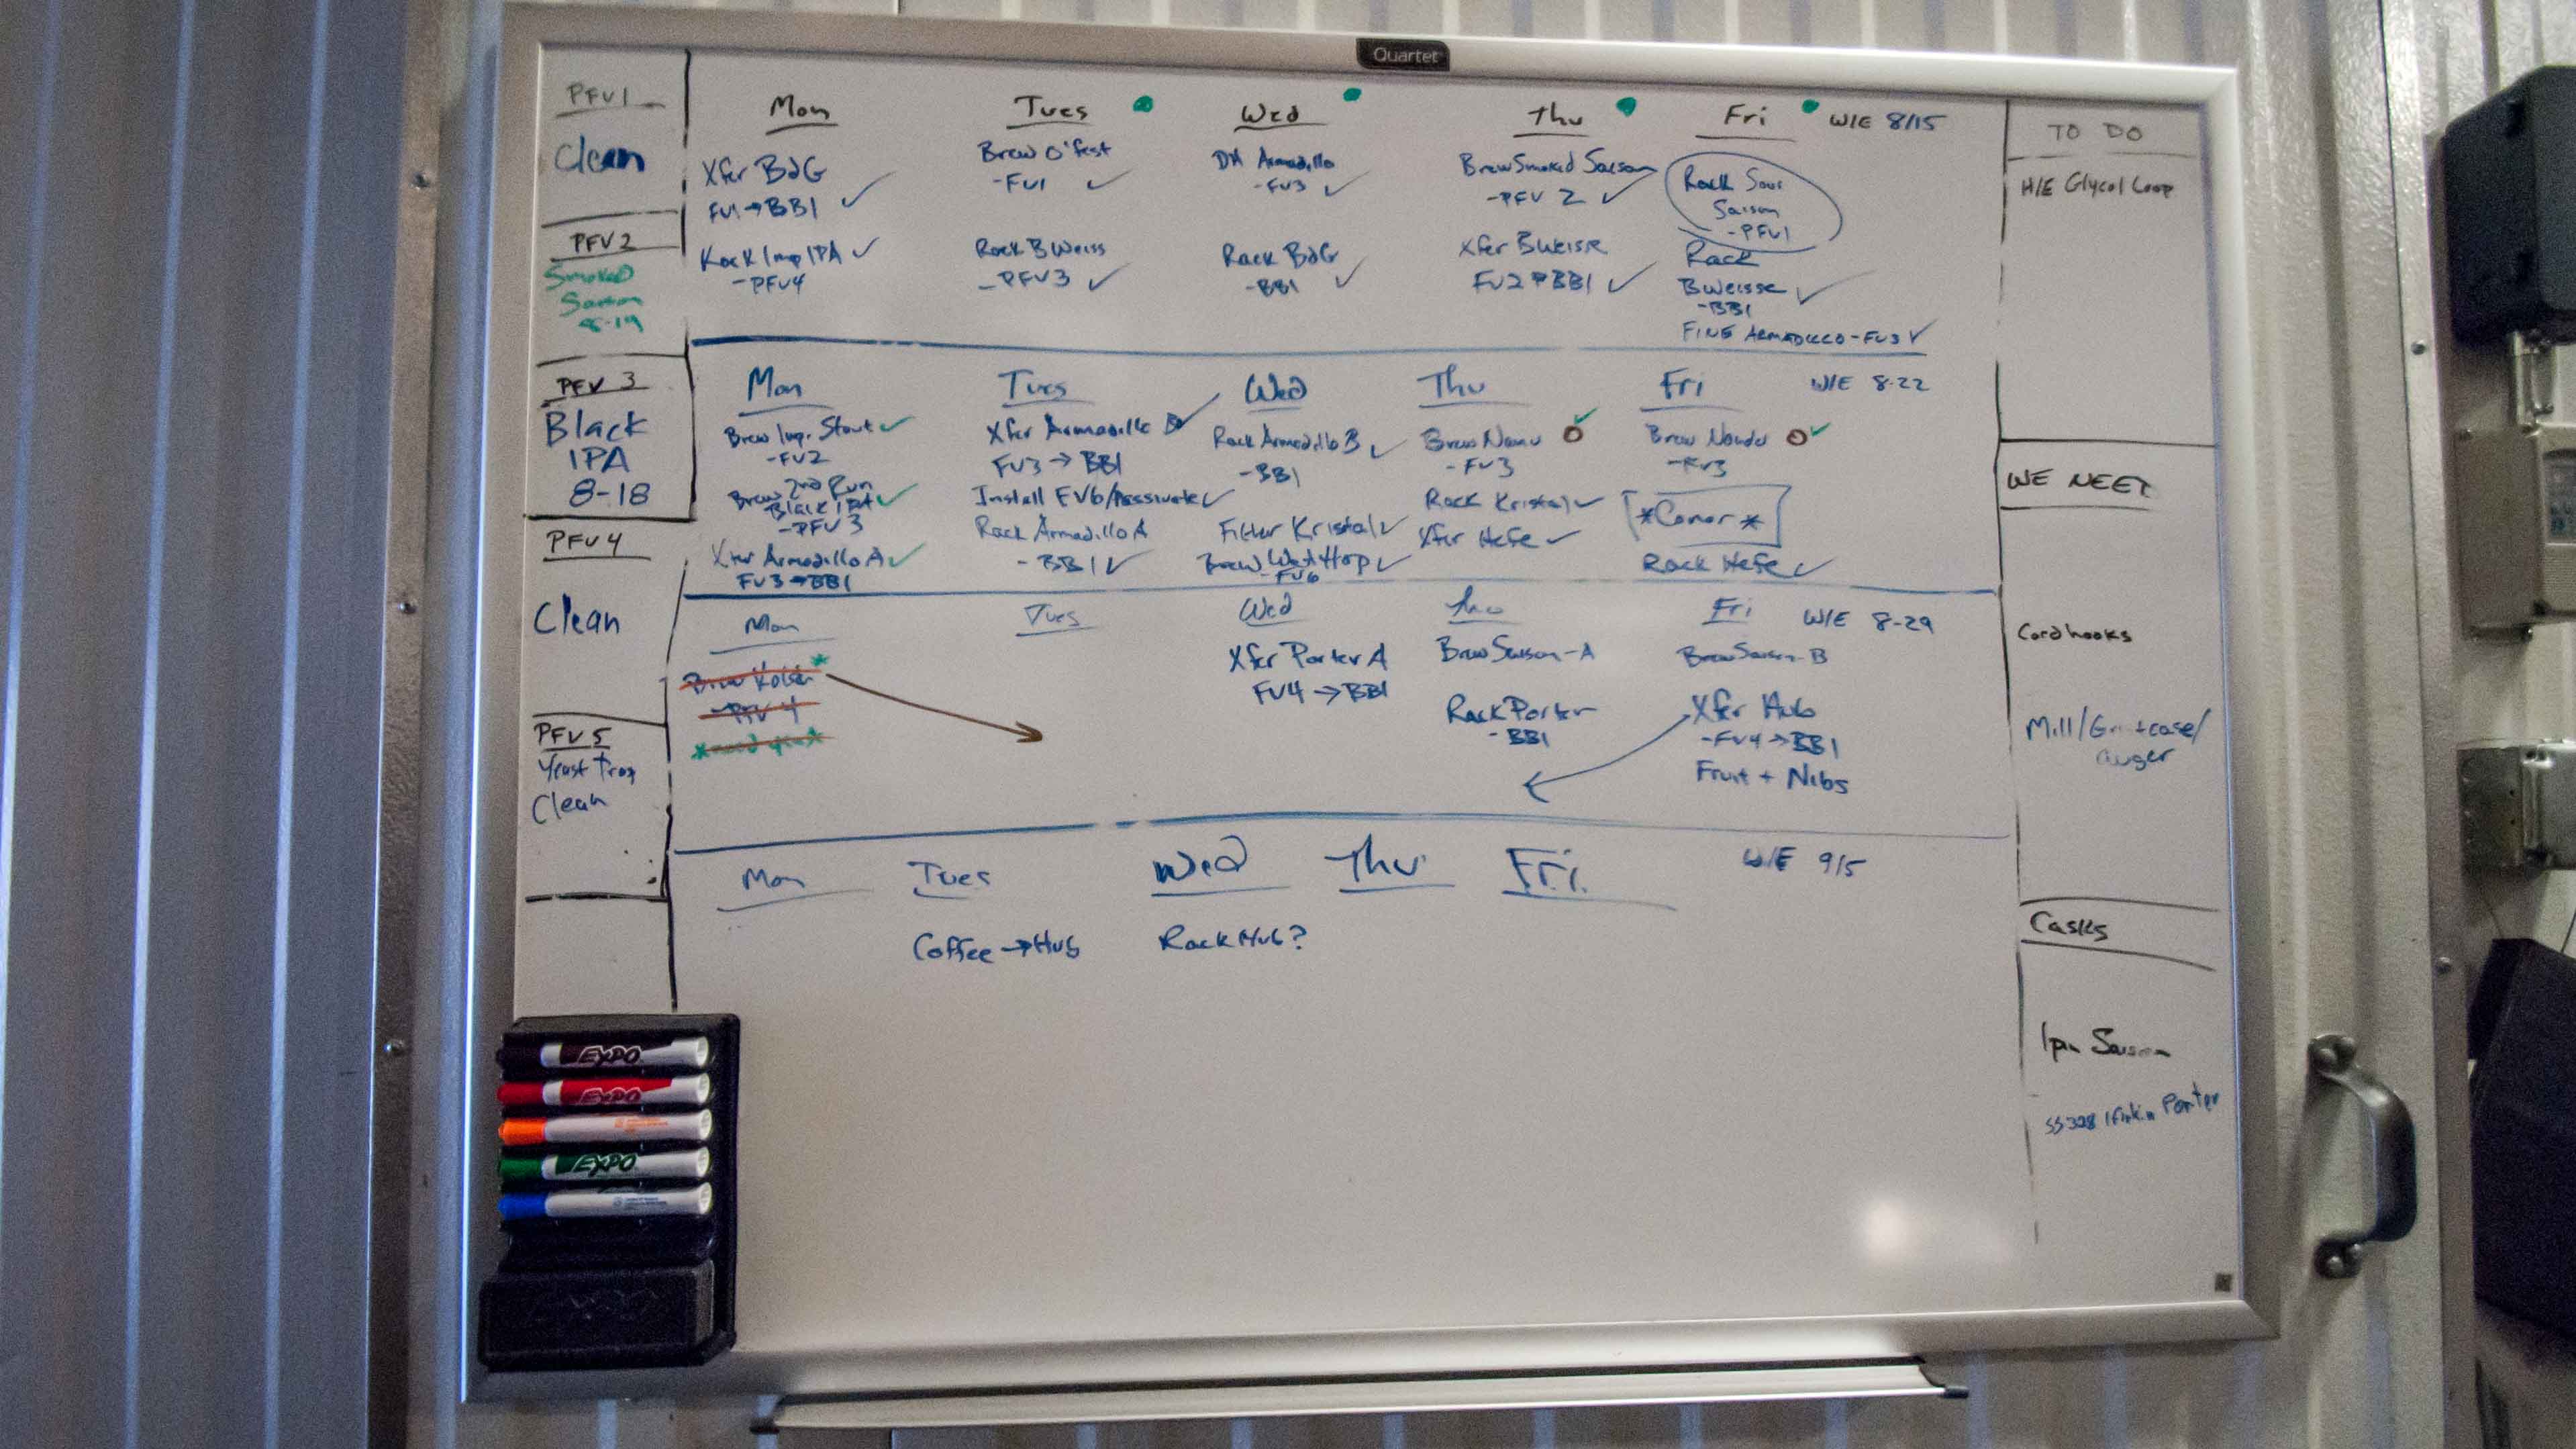 Quartet
PFV1
Clean
PFV2
Smoked
Saison
8-19
PFV 3
Black
IPA
8-18
PFV4
Clean
PFV 5
Yeast Prop
Clean
Mon
Xfer BdG
FV1→BB1 ✓
Rack Imp IPA ✓
-PFV4
Tues
Brew O'fest
-FV1 ✓
Rack BWeiss
-PFV3 ✓
Wed
DH Armadillo
-FV3 ✓
Rack BdG
-BB1 ✓
Thu
Brew Smoked Saison
-PFV 2 ✓
Xfer BWeisse
FV2→BB1 ✓
Fri
W/E 8/15
Rack Sour
Saison
-PFV1
Rack
BWeisse ✓
-BB1
FINE ARMADILLO-FV3 ✓
Mon
Brew Imp. Stout ✓
-FV2
Brew 2nd Run
Black IPA ✓
-PFV 3
Xfer Armadillo A ✓
FV3→BB1
Tues
Xfer Armadillo B ✓
FV3→BB1
Install FV6/Passivate ✓
Rack Armadillo A
-BB1 ✓
Wed
Rack Armadillo B ✓
-BB1
Filter Kristal ✓
Brew Wet Hop ✓
-FV6
Thu
Brew ✓
-FV3
Rack Kristal ✓
Xfer Hefe ✓
Fri
W/E 8-22
Brew ✓
-FV3
*Conor*
Rack Hefe ✓
Mon
Brew Kolsch *
-PFV 4
Tues
Wed
Xfer Porter A
FV4→BB1
Thu
Brew Saison-A
Rack Porter
-BB1
Fri
W/E 8-29
Brew Saison-B
Xfer Hub
-FV4→BB1
Fruit + Nibs
Mon
Tues
Coffee→Hub
Wed
Rack Hub?
Thu
Fri.
W/E 9/5
TO DO
H/E Glycol Loop
WE NEED
Cord hooks
Mill/Gristcase/
auger
Casks
1 pin Saison
SS328 1 firkin Porter
EXPO
EXPO
EXPO